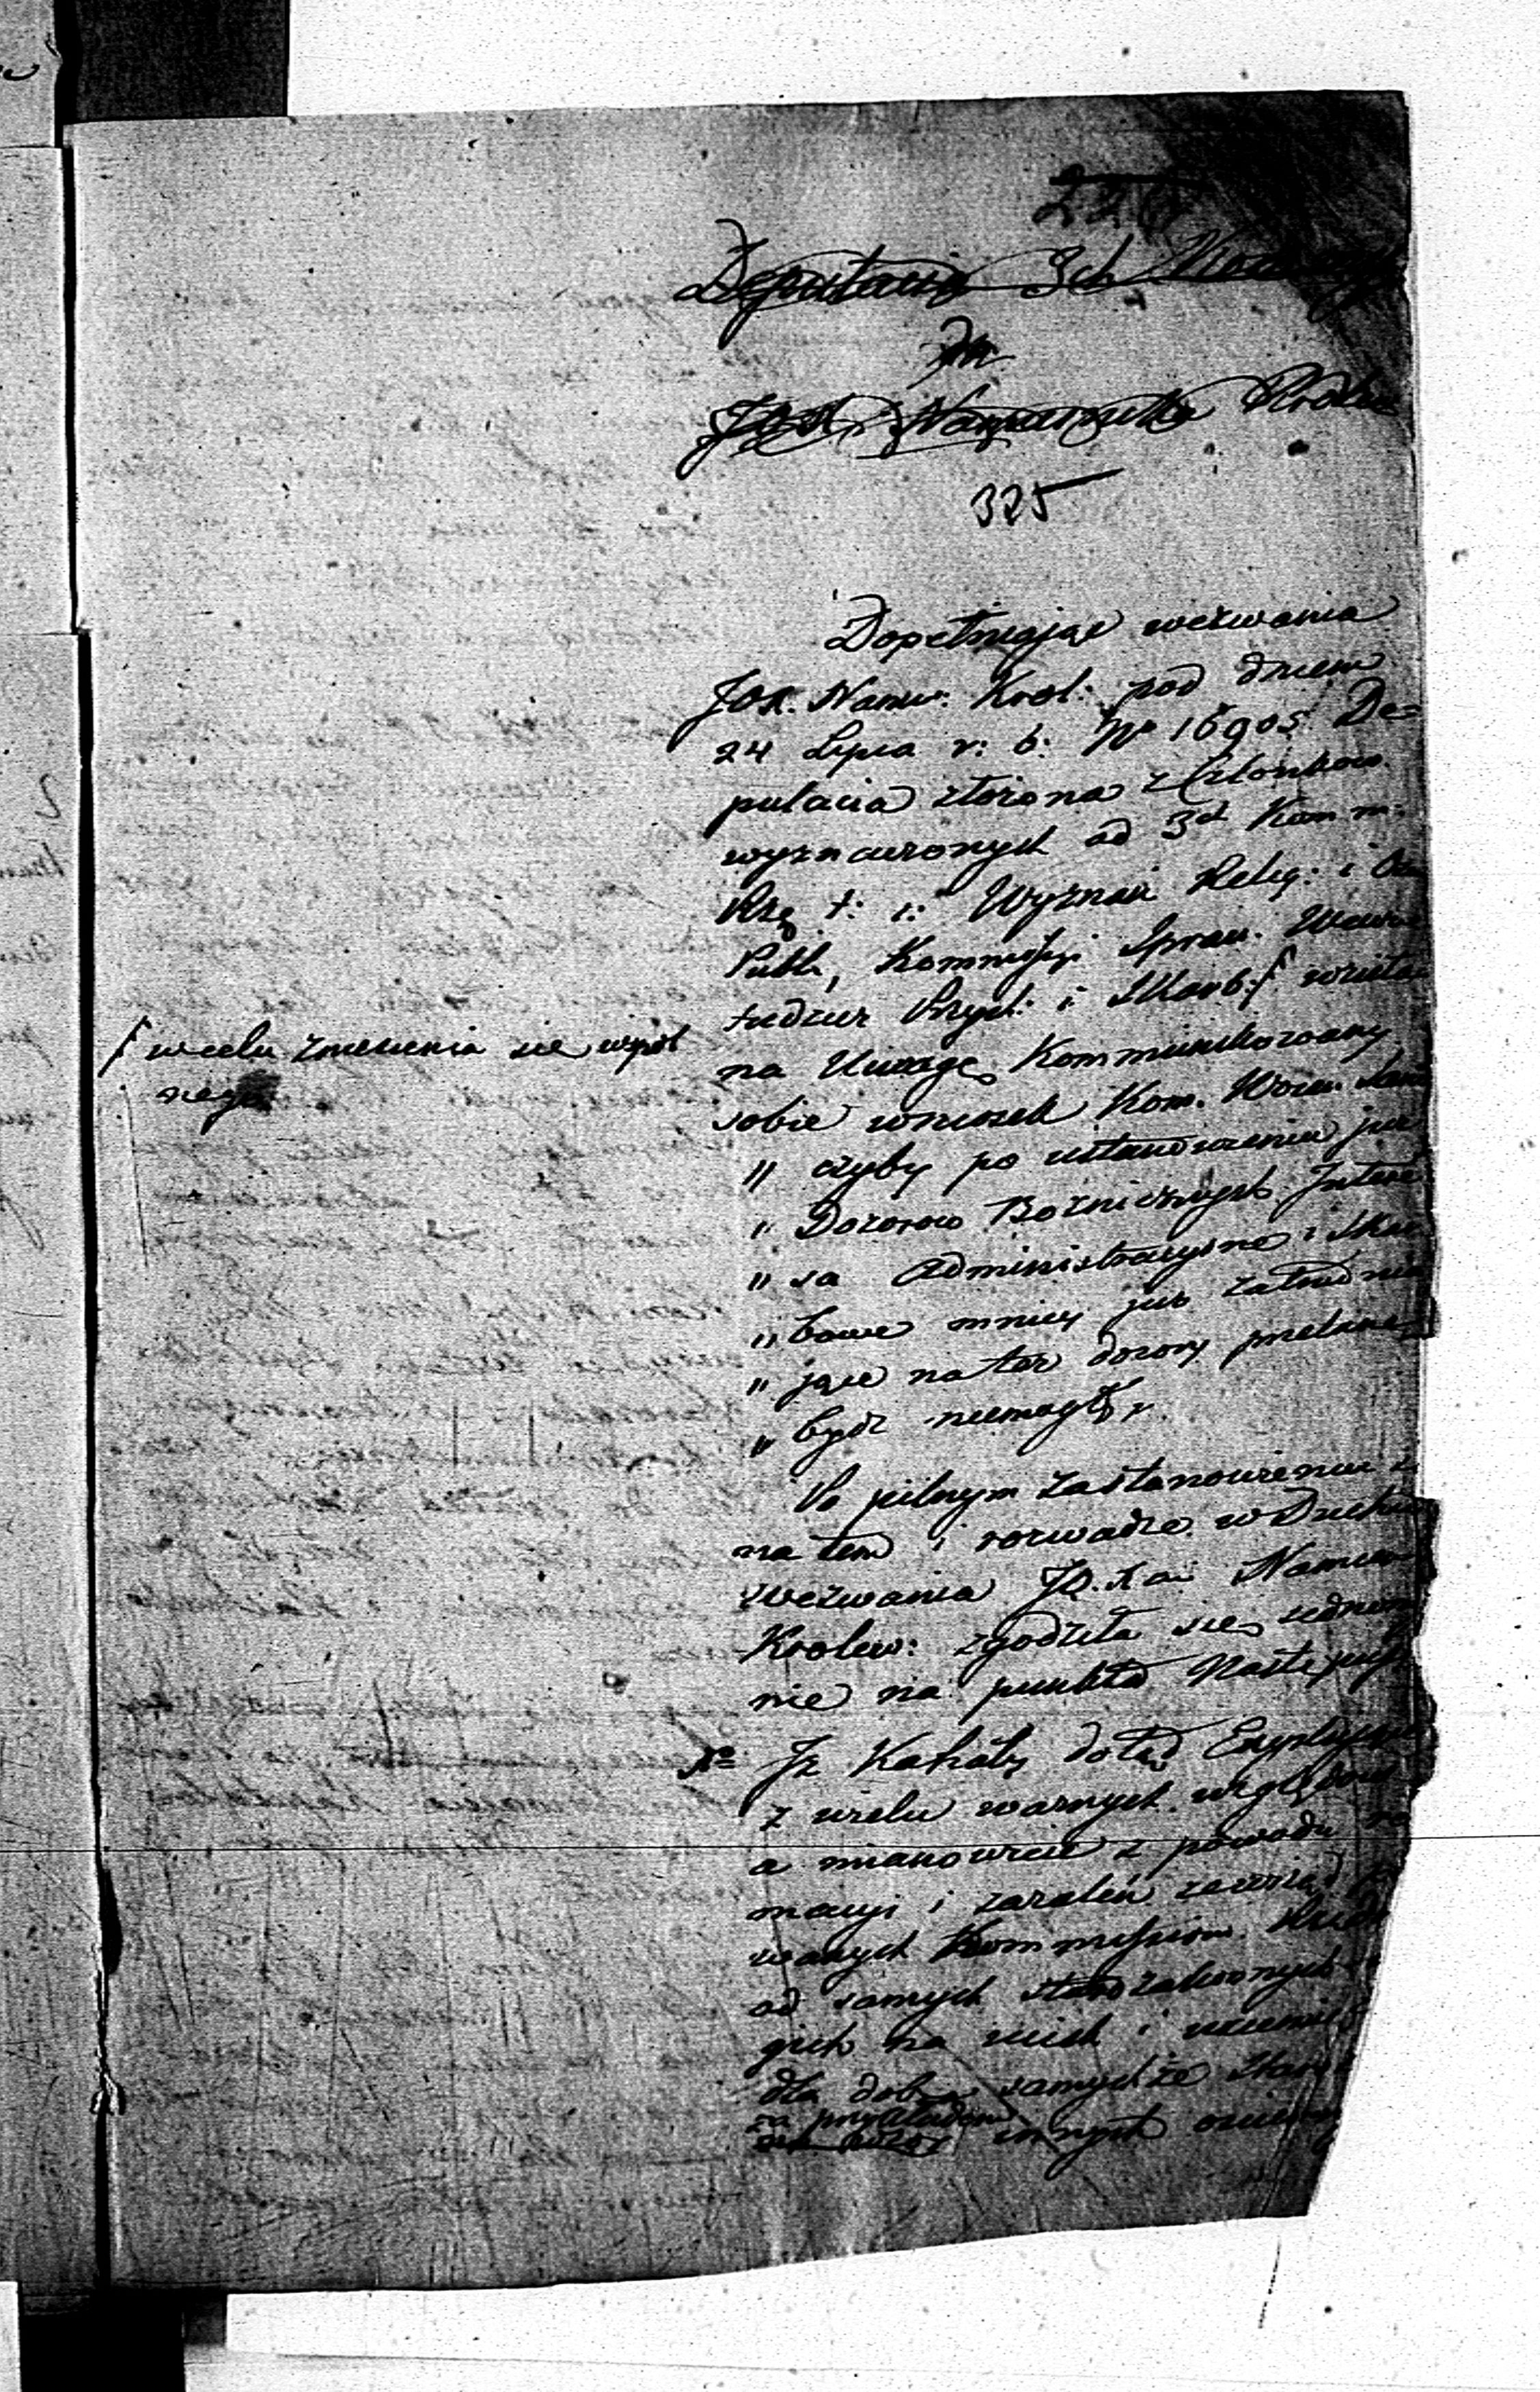 Deputacia 3ch
Do
JOX. Namiestnika Krolew
325
Dopełniając wezwania
JOX. Namie: Krol: pod dniem
24 Lipca r: b: No 16905 De=
putacia złożona z Członkow
wyznaczonych od 3ch Komm:
Rzą t: i: Wyznań Relig: i
Publ, Kommissyi Spraw. Wewn
tudzież Przych: i Skarb: / wzieła
/ w celu zniesienia się wspól
nego
na Uwagę Kommunikowany
sobie wniosek Kom. Woiew.
" czyby po ustanowieniu już
" Dozorow Bożniczych Intere
" sa Administracyine i Skar
" bowe mniey już zatrudnia
" jące na też dozory przelane
" bydz niemogły,,
Po pilnym zastanowieniu
na tem i rozwadze w Duchu
wezwania JO. Xcia Namies
Krolew: zgodziła się jedno
nie na punkta Następu
1o Iż Kahały dotąd Exystu
z wielu ważnych względow
a mianowicie z powodu
macyi i zażaleń zewsząd
wanych Kommissiom Rząd
od samych starozakonnych
gich na ucisk i uciemię
dla dobra samychże Staro
za przykładem innych